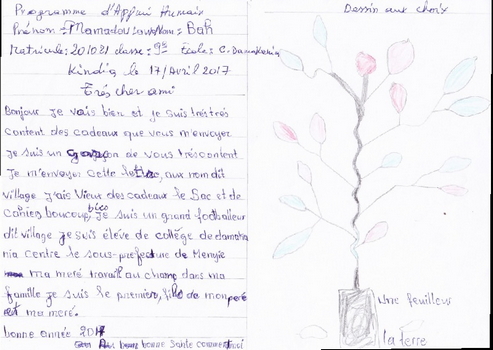 Programme d'Appui Humain
Prénom: Mamadou Nom: Bah
Matricule: 201021 classe: 9e Ecole: C. Damakania
Kindia le 17/Avril 2017
Trés cher ami
Bonjour Je vais bien et je suis tréstrés
content des cadeaux que vous m'envoyer
Je suis un de vous tréscontent
Je m'envoyer cette aux nom dit
village J'ais Vieux des cadeaux le Sac et de
boucoup, Je suis un grand
dit village Je suis éléve de collège de damaka
nia centre le sous-prefecture de
ma meré travail au champ dans ma
famille Je suis le premiere, fils de monperé
et ma meré.
bonne année 2017
bonne Sante
Dessin aux choix
Une feuilleur
la terre